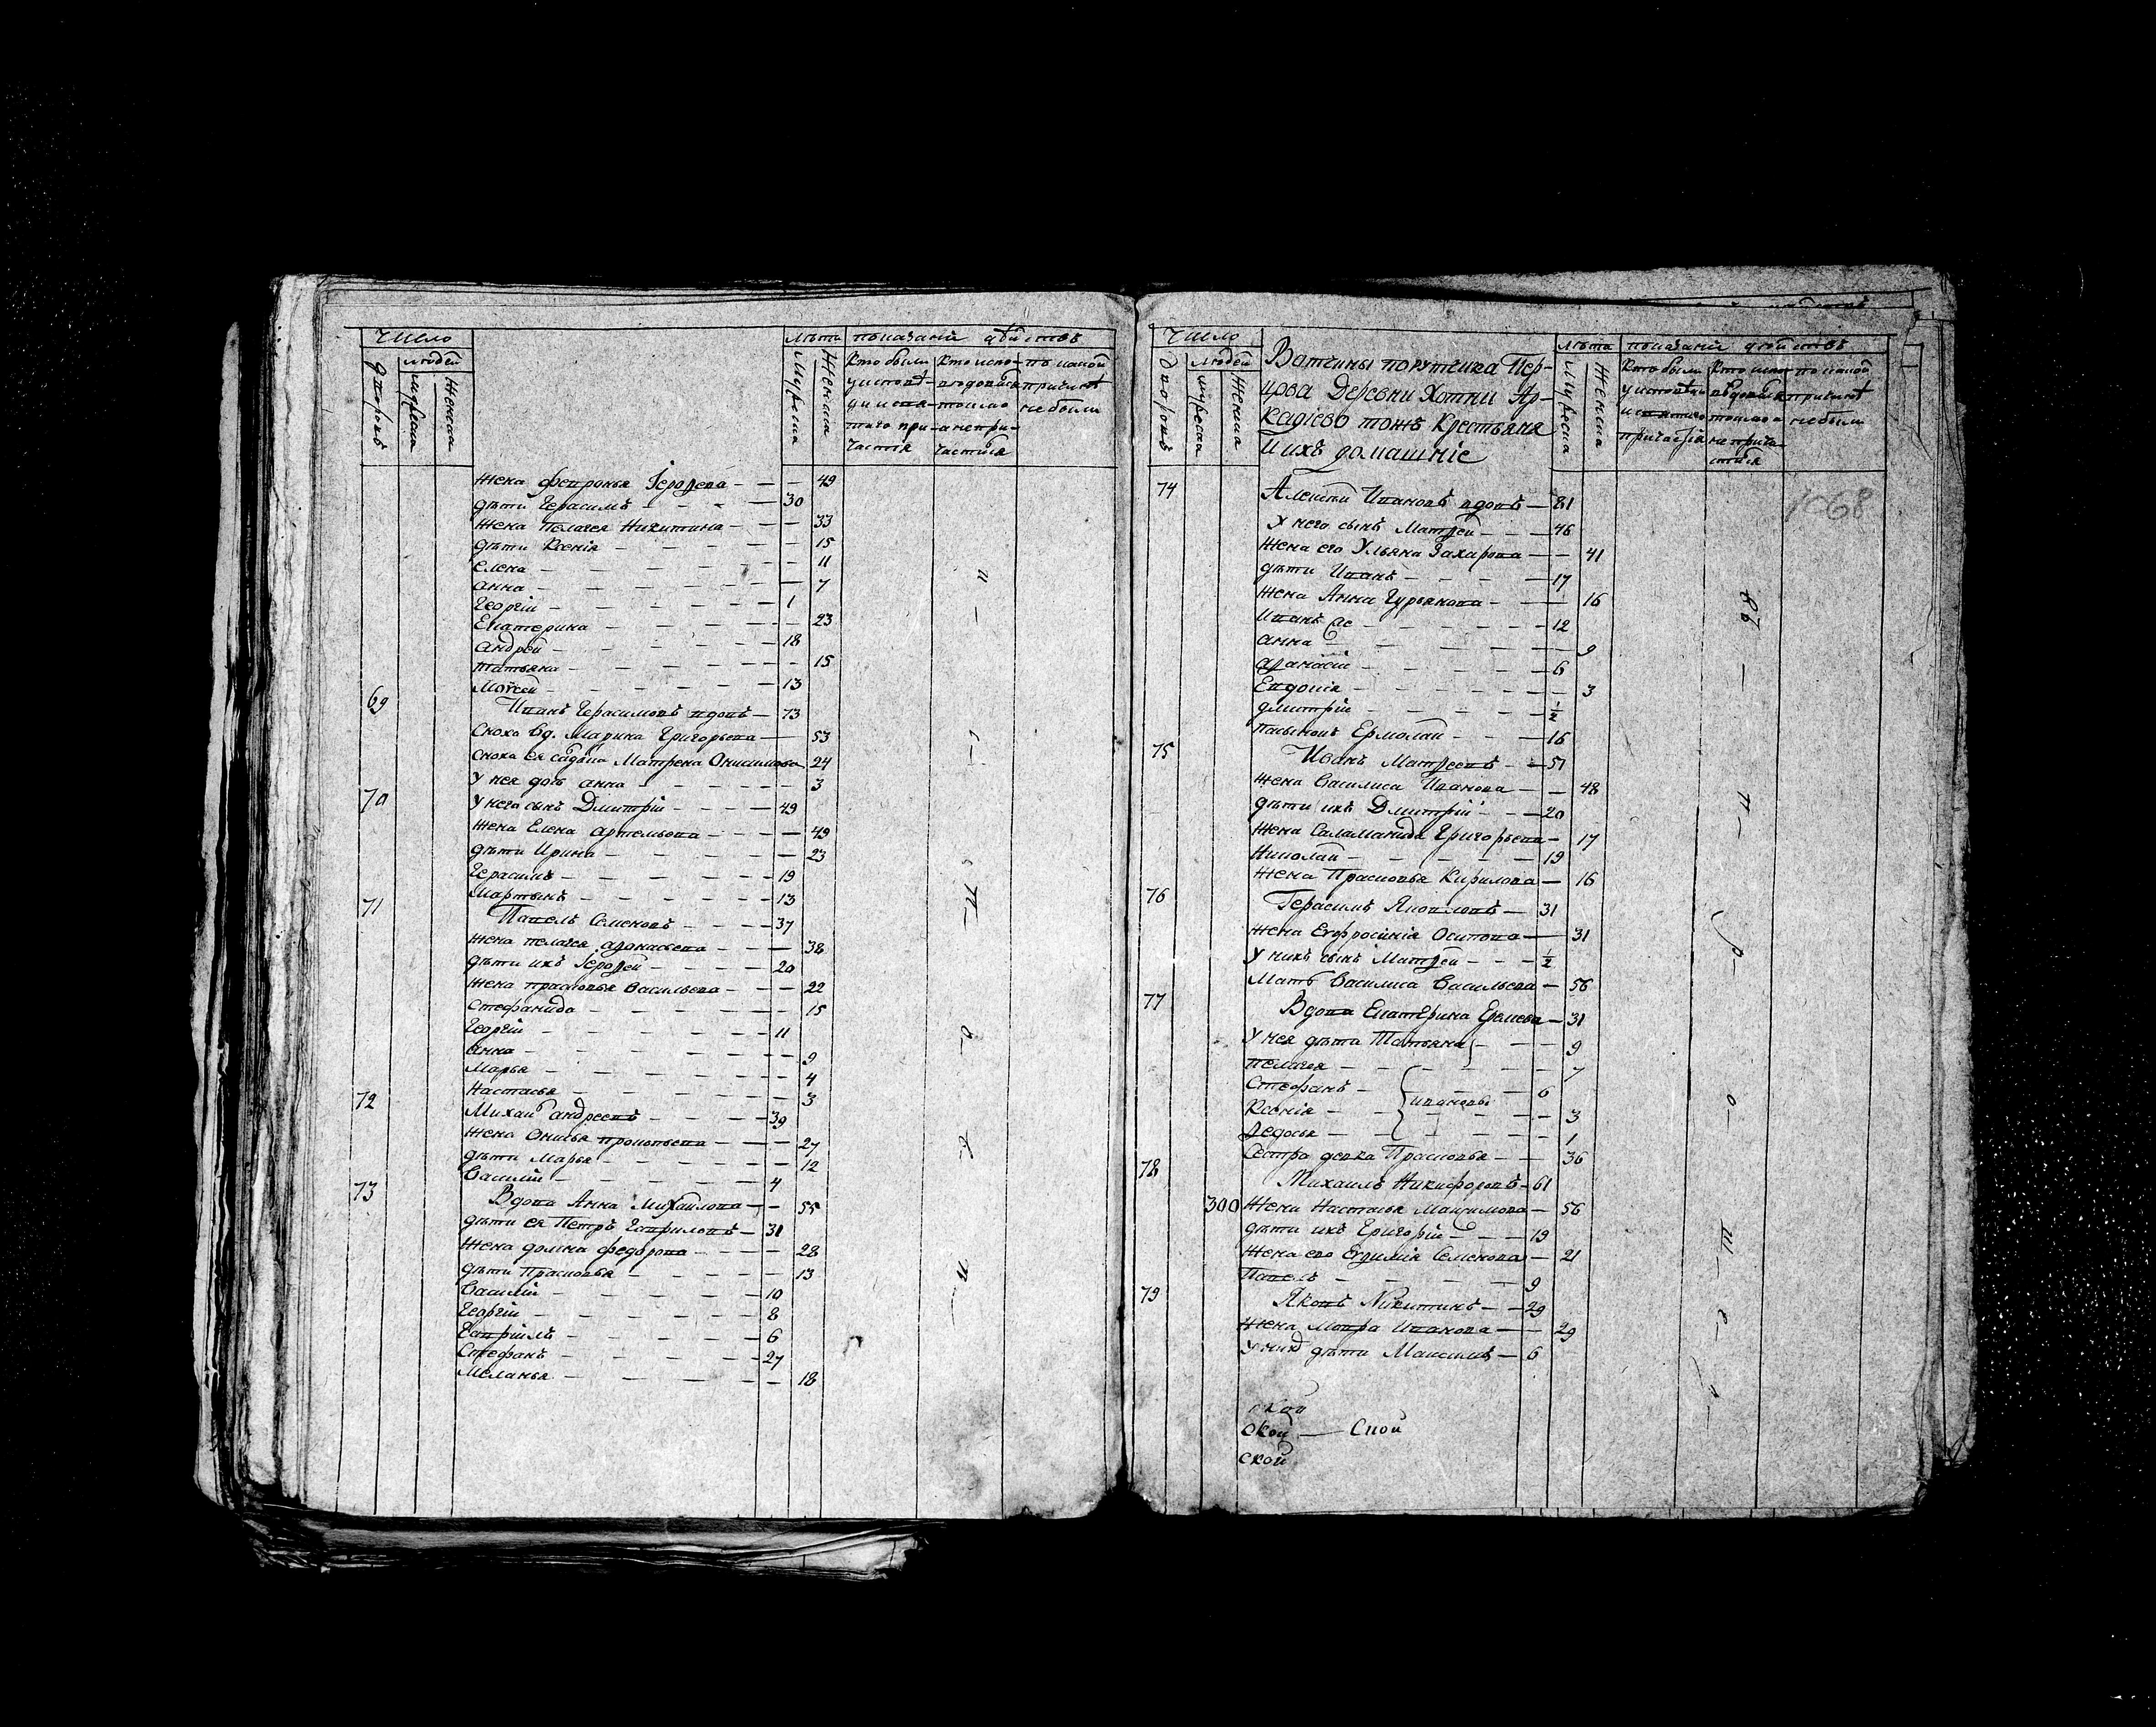 Число
людей
дворовъ
мужеска
женска
Лѣта
мужеска
женска
показаніи дѣйствъ
Кто были у исповѣди и святаго причастія
Кто исповѣдовался токмо а не причастился
по какой причинѣ не были
Жена Февронья Іерофеева 49
дѣти Герасимъ 30
Жена Пелагея Никитина 33
дѣти Ксенія 15
елена 11
анна 7
Георгіи 1
Екатерина 23
андрей 18
татьяна 15
Моѵсей 13
69 Иванъ Герасимовъ вдовъ 73
Сноха вд. Марина Григорьева 53
сноха ея Матрена Онисимова 24
У нея дочь анна 3
70 У него сынъ Дмитрій 49
Жена Елена артемьева 49
дѣти Ирина 23
Герасимъ 19
Мартынъ 13
71 Павелъ Семеновъ 37
Жена пелагея афонасьева 38
дѣти ихъ Іерофей 20
Жена прасковья Васильева 22
Стефанида 15
Георгіи 11
анна 9
Марья 4
Настасья 3
72 Михаи андреевъ 39
Жена Онисья прокопьева 27
дѣти Марья 12
Василіи 4
73 Вдова Анна Михайлова 55
дѣти ея Петръ Гавриловъ 31
Жена домна федорова 28
дѣти Прасковья 13
Василіи 10
Георгіи 8
Гавріилъ 6
Стефанъ 27
Меланья 18
Число
людей
дворовъ
мужеска
женска
Вотчины порутчика Пер-
цова Деревни Хотни Ар-
кадіево тожъ Крестьяня
И ихъ домашніе
Лѣта
мужеска
женска
показаніи дѣйствъ
1068
74 Алексѣи Ивановъ вдовъ 81
У него сынъ Матфеи 46
Жена его Ульяна Захарова 41
дѣти Иванъ 17
Жена Анна Гурьянова 16
Иванъ 12
анна 9
афанасіи 6
Евдокія 3
дмитріи ½
пасынокъ Ермолаи 16
75 Иванъ Матфеевъ 51
Жена Василиса Иванова 48
дѣти ихъ Дмитріи 20
Жена Саламанида Григорьева 17
Николаи 19
Жена Прасковья Кирилова 16
76 Герасимъ Яковлевъ 31
Жена Евфросинія Осипова 31
У нихъ сынъ Матфеи ½
Мать Василиса Васильева 56
77 Вдова Екатерина Еремева 31
У нея дѣти Татьяна 9
пелагея 7
Стефанъ 6
Ксенія ивановы 3
федосья 1
Сестра девка Прасковья 36
78 Михаилъ Никифоровъ 61
300 Жена Настасья Максимова 56
дѣти ихъ Григоріи 19
Жена его Евфимія Семенова 21
Павелъ 9
79 Яковъ Никитинъ 29
Жена Мавра Иванова 29
У нихъ дѣти Максимъ 6
ской
ской — Скои
ской